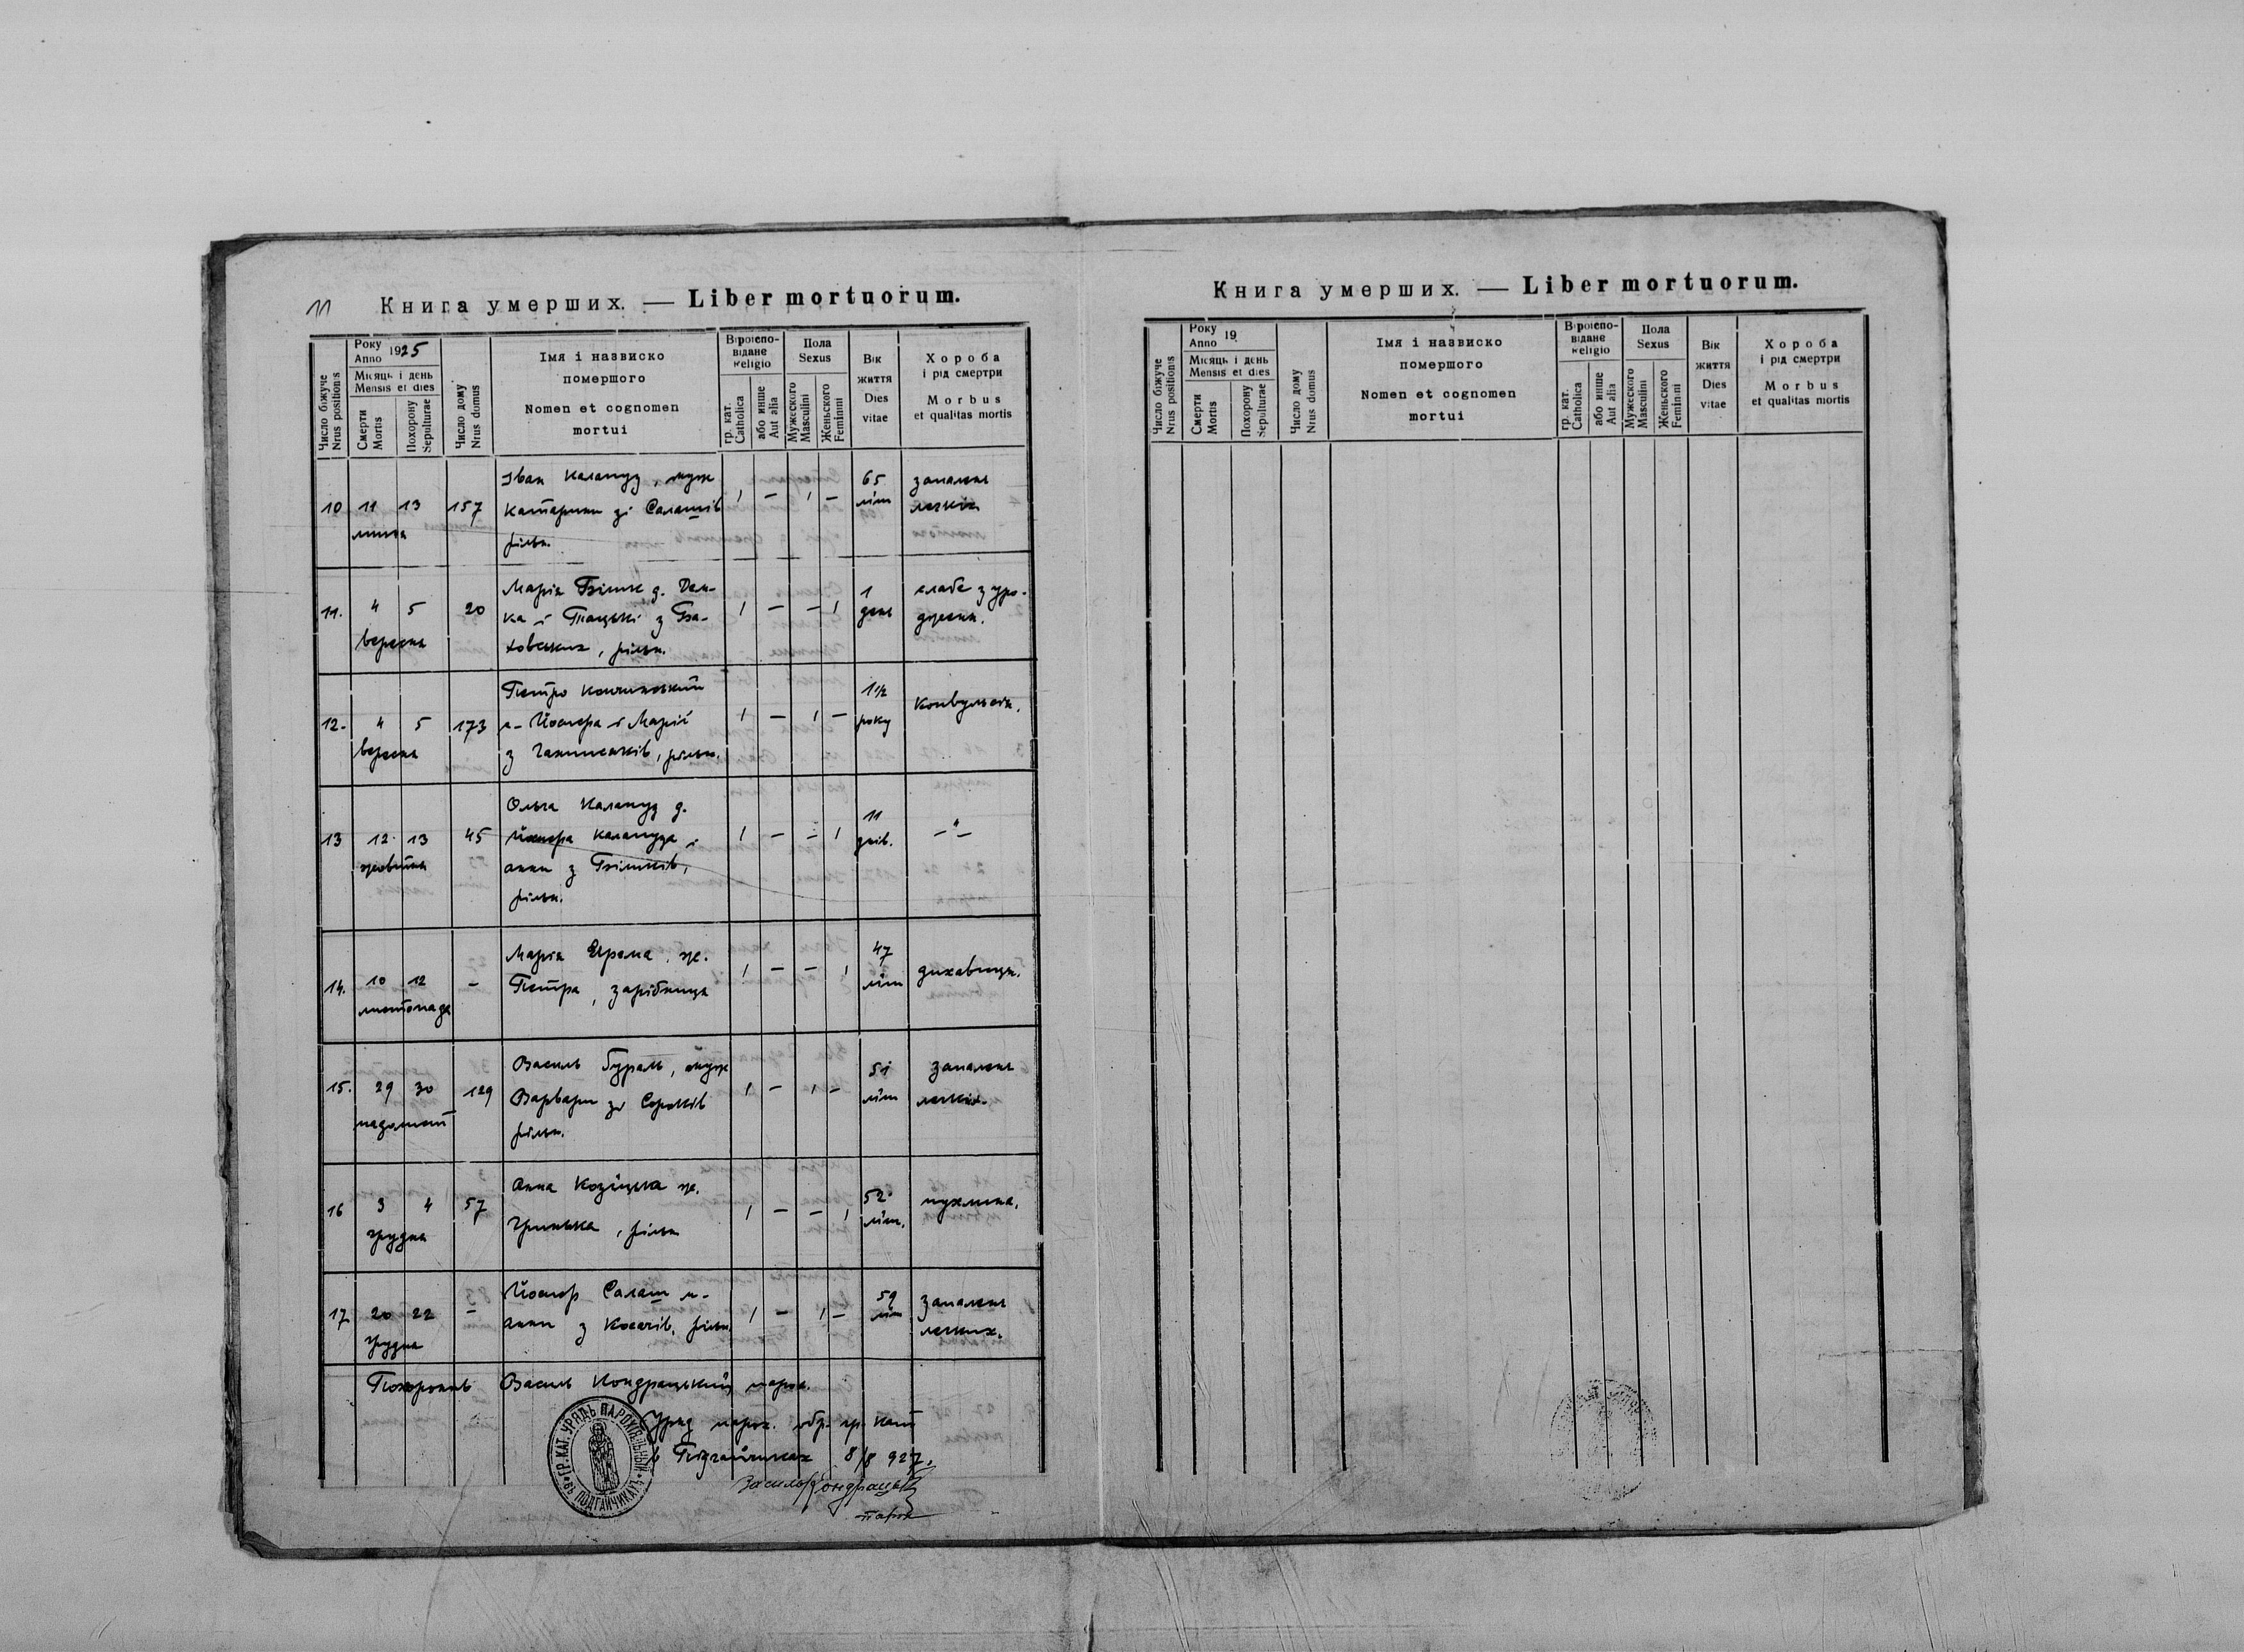 11
Книга умерших. — Liber mortuorum.
Число біжуче
Nrus positionis
Року
Anno 1925
Місяць і день
Mensis et dies
Смерти
Mortis
Похорону
Sepulturae
Число дому
Nrus domus
Імя і назвиско
помершого
Nomen et cognomen
mortui
Віроіспо-
відане
Religio
гр. кат.
Catholica
або инше
Aut alia
Пола
Sexus
Мужеского
Masculini
Женьского
Feminini
Вік
життя
Dies
vitae
Хороба
і рід смертри
Morbus
et qualitas mortis
10 11 13 157
липня
Іван Калапуд, муж
Катарини зі Салашів
рільн.
1 — 1 —
65
літ
запалень
легких
11. 4 5 20
вересня
Марія Білик д. Дан-
ка і
ховських, рільн.
1 — — 1
1
день
слабе з уро-
дженя.
12. 4 5 173
вересня
Петро
с. Йосифа і Марії
з рільн.
1 — 1 —
1 1/2
року
Конвульсія.
13 12 13 45
жовтня
Ольга Калапуд д.
Йосифа Калапуда і
Анни з Біликів,
рільн.
1 — — 1
11
днів.
— " —
14. 10 12 —
листопада
Марія Ярема, ж.
Петра, зарібниця
1 — — 1
47
літ
дихавиця.
15. 29 30 129
падолист
Василь Бураль, муж
Варвари зі Сороків
рільн.
1 — 1 —
51
літ
запалень
легких.
16 3 4 57
грудня
Анна Козіцька ж.
Гринька, рільн
1 — — 1
52
літ.
пухлина.
17. 20 22 —
грудня
Йосиф Салаш м.
Анни з Косачів, рільн
1 — 1 —
59
літ
запалень
легких.
Похоронив Василь Кондрацький парох.
Уряд парох. обр. гр. кат
в Підгайчиках 8/8 927.
Василь Кондрацький
парох
ГР.КАТ. УРЯДЪ ПАРОХІЯЛЬНЫЙ
ВЪ ПОДГАЙЧИКАХЪ
Книга умерших. — Liber mortuorum.
Число біжуче
Nrus positionis
Року
Anno 19
Місяць і день
Mensis et dies
Смерти
Mortis
Похорону
Sepulturae
Число дому
Nrus domus
Імя і назвиско
помершого
Nomen et cognomen
mortui
Віроіспо-
відане
Religio
гр. кат.
Catholica
або инше
Aut alia
Пола
Sexus
Мужеского
Masculini
Женьского
Feminini
Вік
життя
Dies
vitae
Хороба
і рід смертри
Morbus
et qualitas mortis